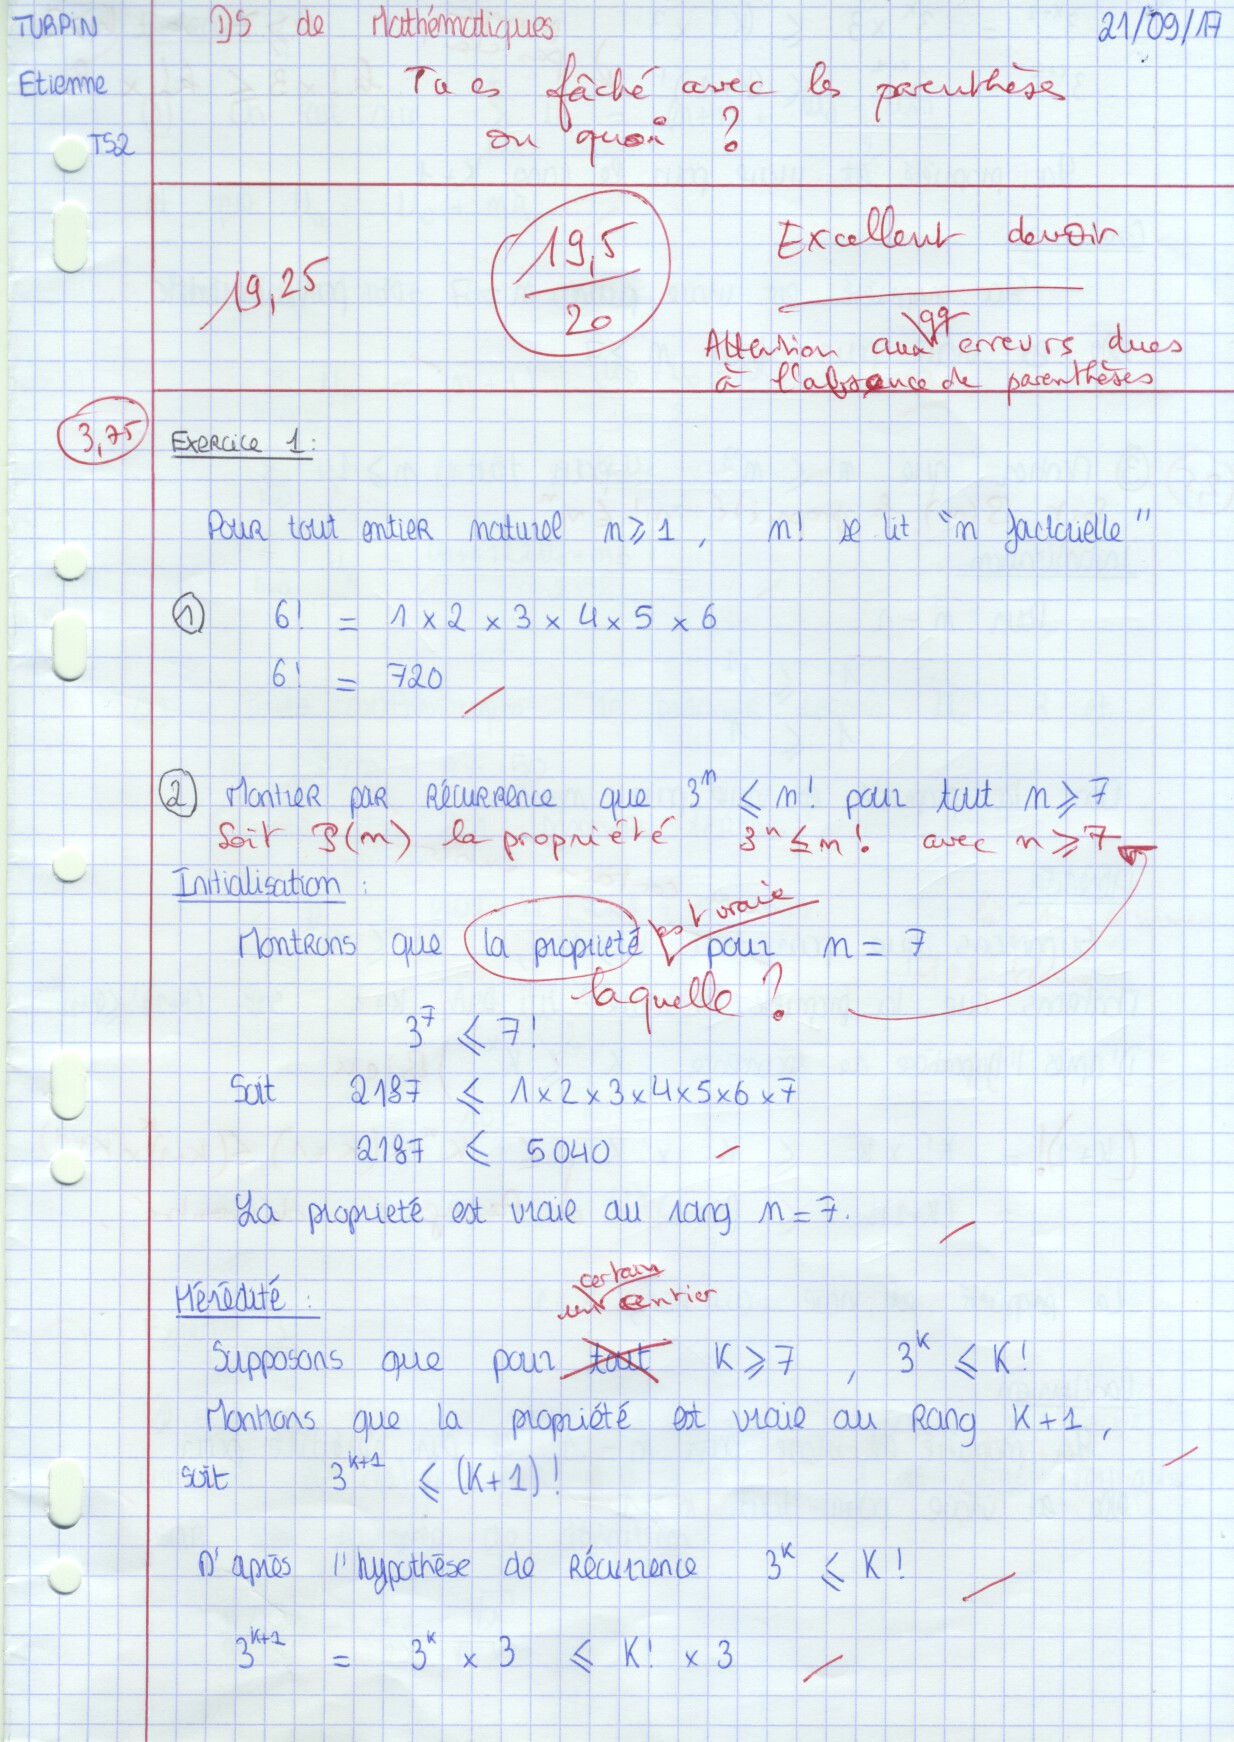 TURPIN DS de Mathématiques 21/09/17
Etienne Tu es fâché avec les parenthèses
TS2 ou quoi ?
19,25 19,5/20 Excellent devoir
Attention aux qq erreurs dues
à l'absence de parenthèses
3,75 Exercice 1:
Pour tout entier naturel n ⩾ 1, n! se lit "n factorielle"
① 6! = 1 × 2 × 3 × 4 × 5 × 6
6! = 720
② Montrer par récurrence que 3ⁿ ⩽ n! pour tout n ⩾ 7
Soit P(n) la propriété 3ⁿ ≤ n! avec n ⩾ 7
Initialisation :
Montrons que la proprieté est vraie pour n = 7
laquelle ?
3⁷ ⩽ 7!
Soit 2187 ⩽ 1×2×3×4×5×6×7
2187 ⩽ 5040
La proprieté est vraie au rang n = 7.
Hérédité :
certain
un entier
Supposons que pour tout K ⩾ 7, 3ᴷ ⩽ K!
Montrons que la propriété est vraie au Rang K+1,
soit 3ᴷ⁺¹ ⩽ (K+1)!
D'après l'hypothèse de Récurrence 3ᴷ ⩽ K!
3ᴷ⁺¹ = 3ᴷ × 3 ⩽ K! × 3